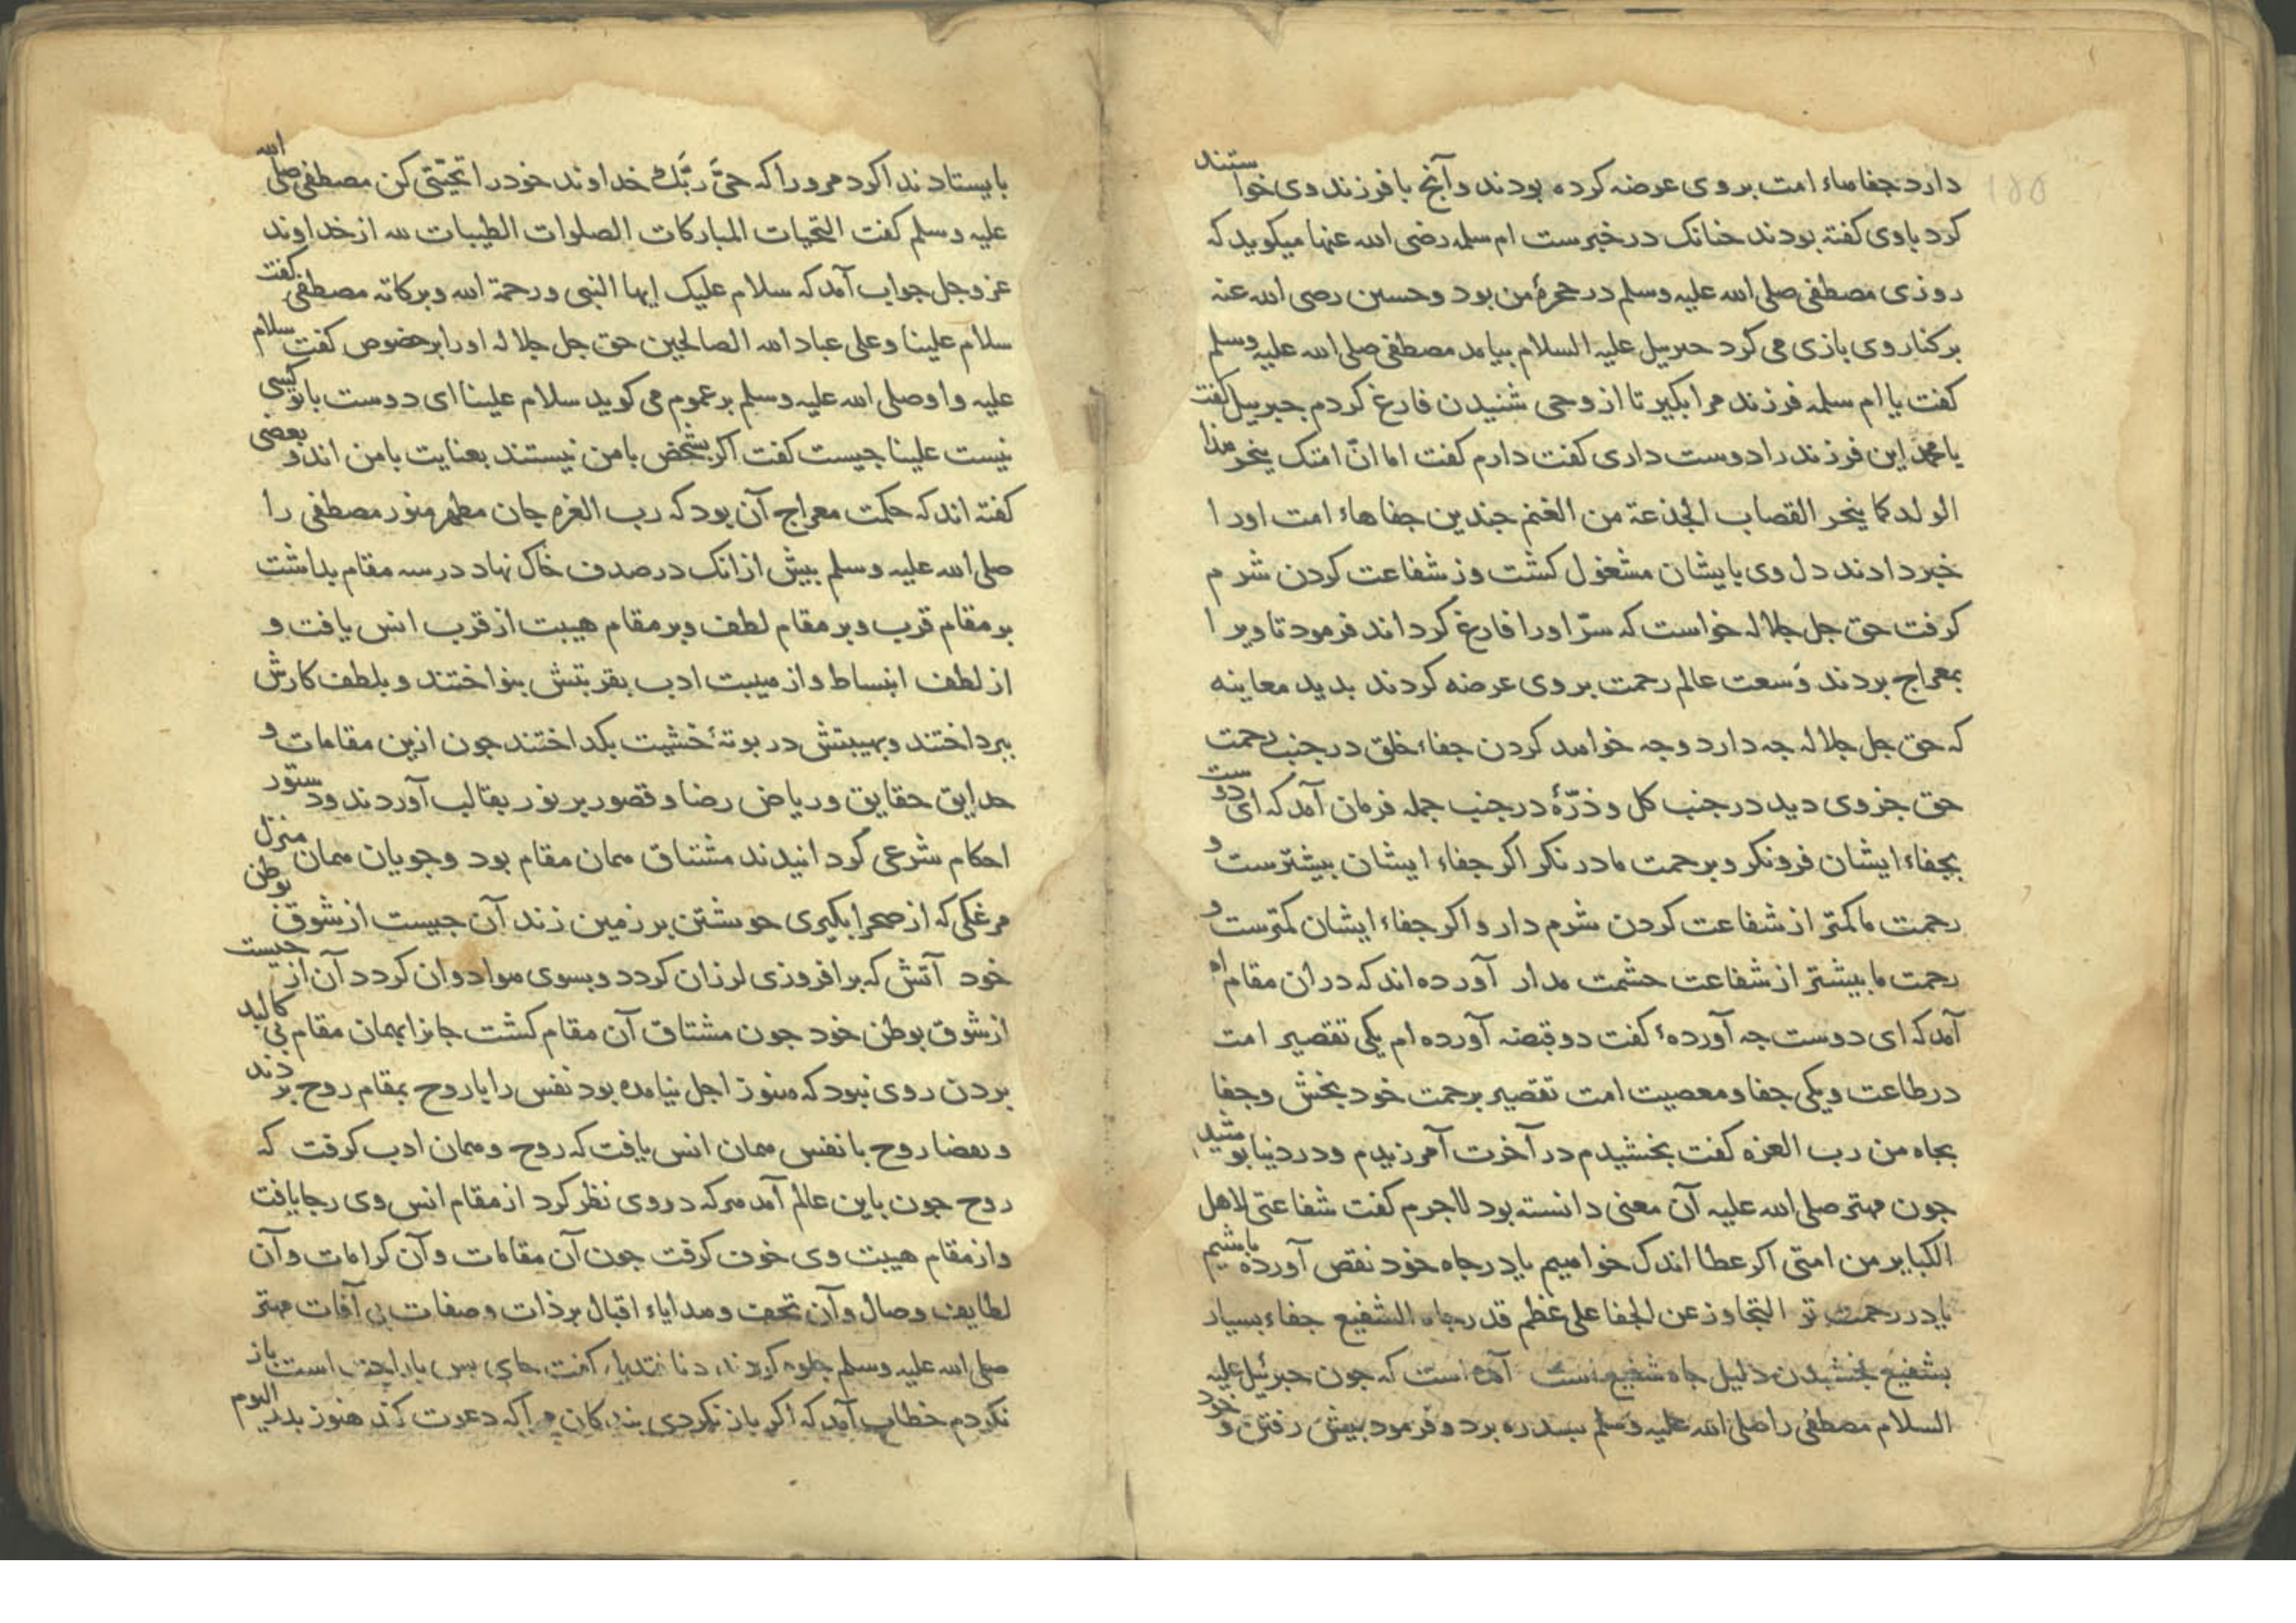 دارد جفاهاء امت بر وی عرضه کرده بودند و آنچ با فرزند وی خواستند
کرد با وی کفته بودند جنانک در خبرست ام سلمه رضی الله عنها میکوید که
روزی مصطفی صلی الله علیه وسلم در حجرۀ من بود و حسین رضی الله عنه
بر کنار وی بازی می کرد جبریل علیه السلام بیامد مصطفی صلی الله علیه وسلم
کفت یا ام سلمه فرزند مرا بکیر تا از وحی شنیدن فارغ کردم جبریل کفت
یا محمد این فرزند را دوست داری کفت دارم کفت اما انّ امتک ینحر هذا
الولد کما ینحر القصاب الجذعة من الغنم جندین جفاهاء امت اورا
خبر دادند دل وی بایشان مشغول کشت وز شفاعت کردن شرم
کرفت حق جل جلاله خواست که سرّ اورا فارغ کرداند فرمود تا ویرا
بمعراج بردند وَسعت عالم رحمت بر وی عرضه کردند بدید معاینه
که حق جل جلاله جه دارد وجه خواهد کردن جفاء خلق در جنب رحمت
حق جزوی دید در جنب کل و ذرّۀ در جنب جمله فرمان آمد که ای دوست
بجفاء ایشان فرو نکر و برحمت ما در نکر اکر جفاء ایشان بیشترست و
رحمت ما کمتر از شفاعت کردن شرم دار و اکر جفاء ایشان کمترست و
رحمت ما بیشتر از شفاعت حشمت مدار آورده اند که در ان مقام
آمد که ای دوست جه آوردۀ کفت دو قبضه آورده ام یکی تقصیر امت
در طاعت و یکی جفا و معصیت امت تقصیر برحمت خود بخش وجفا
بجاه من رب العزه کفت بخشیدم در آخرت آمرزیدم و در دنیا بوشیدم
جون مهتر صلی الله علیه آن معنی دانسته بود لاجرم کفت شفاعتی لاهل
الکبایر من امتی اکر عطا اندک خواهیم یا در جاه خود نقص آورده باشیم
یا در رحمت تو التجاوز عن الجفا علی عظم قدر جاه الشفیع جفاء بسیار
بشفیع بخشیدن دلیل جاه شفیع است آمده است که جون جبرئیل علیه
السلام مصطفی را صلی الله علیه وسلم بسدره برد و فرمود بیش رفتن و خود
بایستاد ندا کرد مرورا که حیَّ ربَّک خداوند خود را تحیّتی کن مصطفی صلی الله
علیه وسلم کفت التحیات المبارکات الصلوات الطیبات لله از خداوند
عز وجل جواب آمد که سلام علیک ایها النبی ورحمة الله وبرکاته مصطفی کفت
سلام علینا وعلی عباد الله الصالحین حق جل جلاله اورا بر خصوص کفت سلام
علیه و او صلی الله علیه وسلم بر عموم می کوید سلام علینا ای دوست با تو کسی
نیست علینا جیست کفت اکر بشخص با من نیستند بعنایت با من اند و بعضی
کفته اند که حکمت معراج آن بود که رب العزه جان مطهر منور مصطفی را
صلی الله علیه وسلم بیش از انک در صدف خاک نهاد در سه مقام بداشت
بر مقام قرب و بر مقام لطف و بر مقام هیبت از قرب انس یافت و
از لطف انبساط و از هیبت ادب بقربتش بنواختند و بلطف کارش
ببرداختند و بهیبتش در بوتۀ خشیت بکداختند جون ازین مقامات و
حدایق حقایق و ریاض رضا و قصور بر نور بقالب آوردند و دستور
احکام شرعی کردانیدند مشتاق همان مقام بود و جویان همان منزل
مرغکی که از صحرا بکیری خویشتن بر زمین زند آن جیست از شوق بوطن
خود آتش که بر افروزی لرزان کردد و بسوی هوا دوان کردد آن از جیست
از شوق بوطن خود جون مشتاق آن مقام کشت جانرا بهمان مقام بی کالبد
بردن روی نبود که هنوز اجل نیامده بود نفس را با روح بمقام روح بردند
روح با نفس همان انس یافت که روح و همان ادب کرفت که
روح جون باین عالم آمد هرکه در وی نظر کرد از مقام انس وی رجا یافت
و از مقام هیبت وی خوف کرفت جون آن مقامات و آن کرامات و آن
لطایف وصال و آن تحف و هدایاء اقبال بر ذات و صفات بی آفات مهتر
صلی الله علیه وسلم جلوه کردند دنا فتدلی کفت جای بس با راحت است باز
نکردم خطاب آمد که اکر باز نکردی بندکان مرا که دعوت کند هنوز بدر الیوم